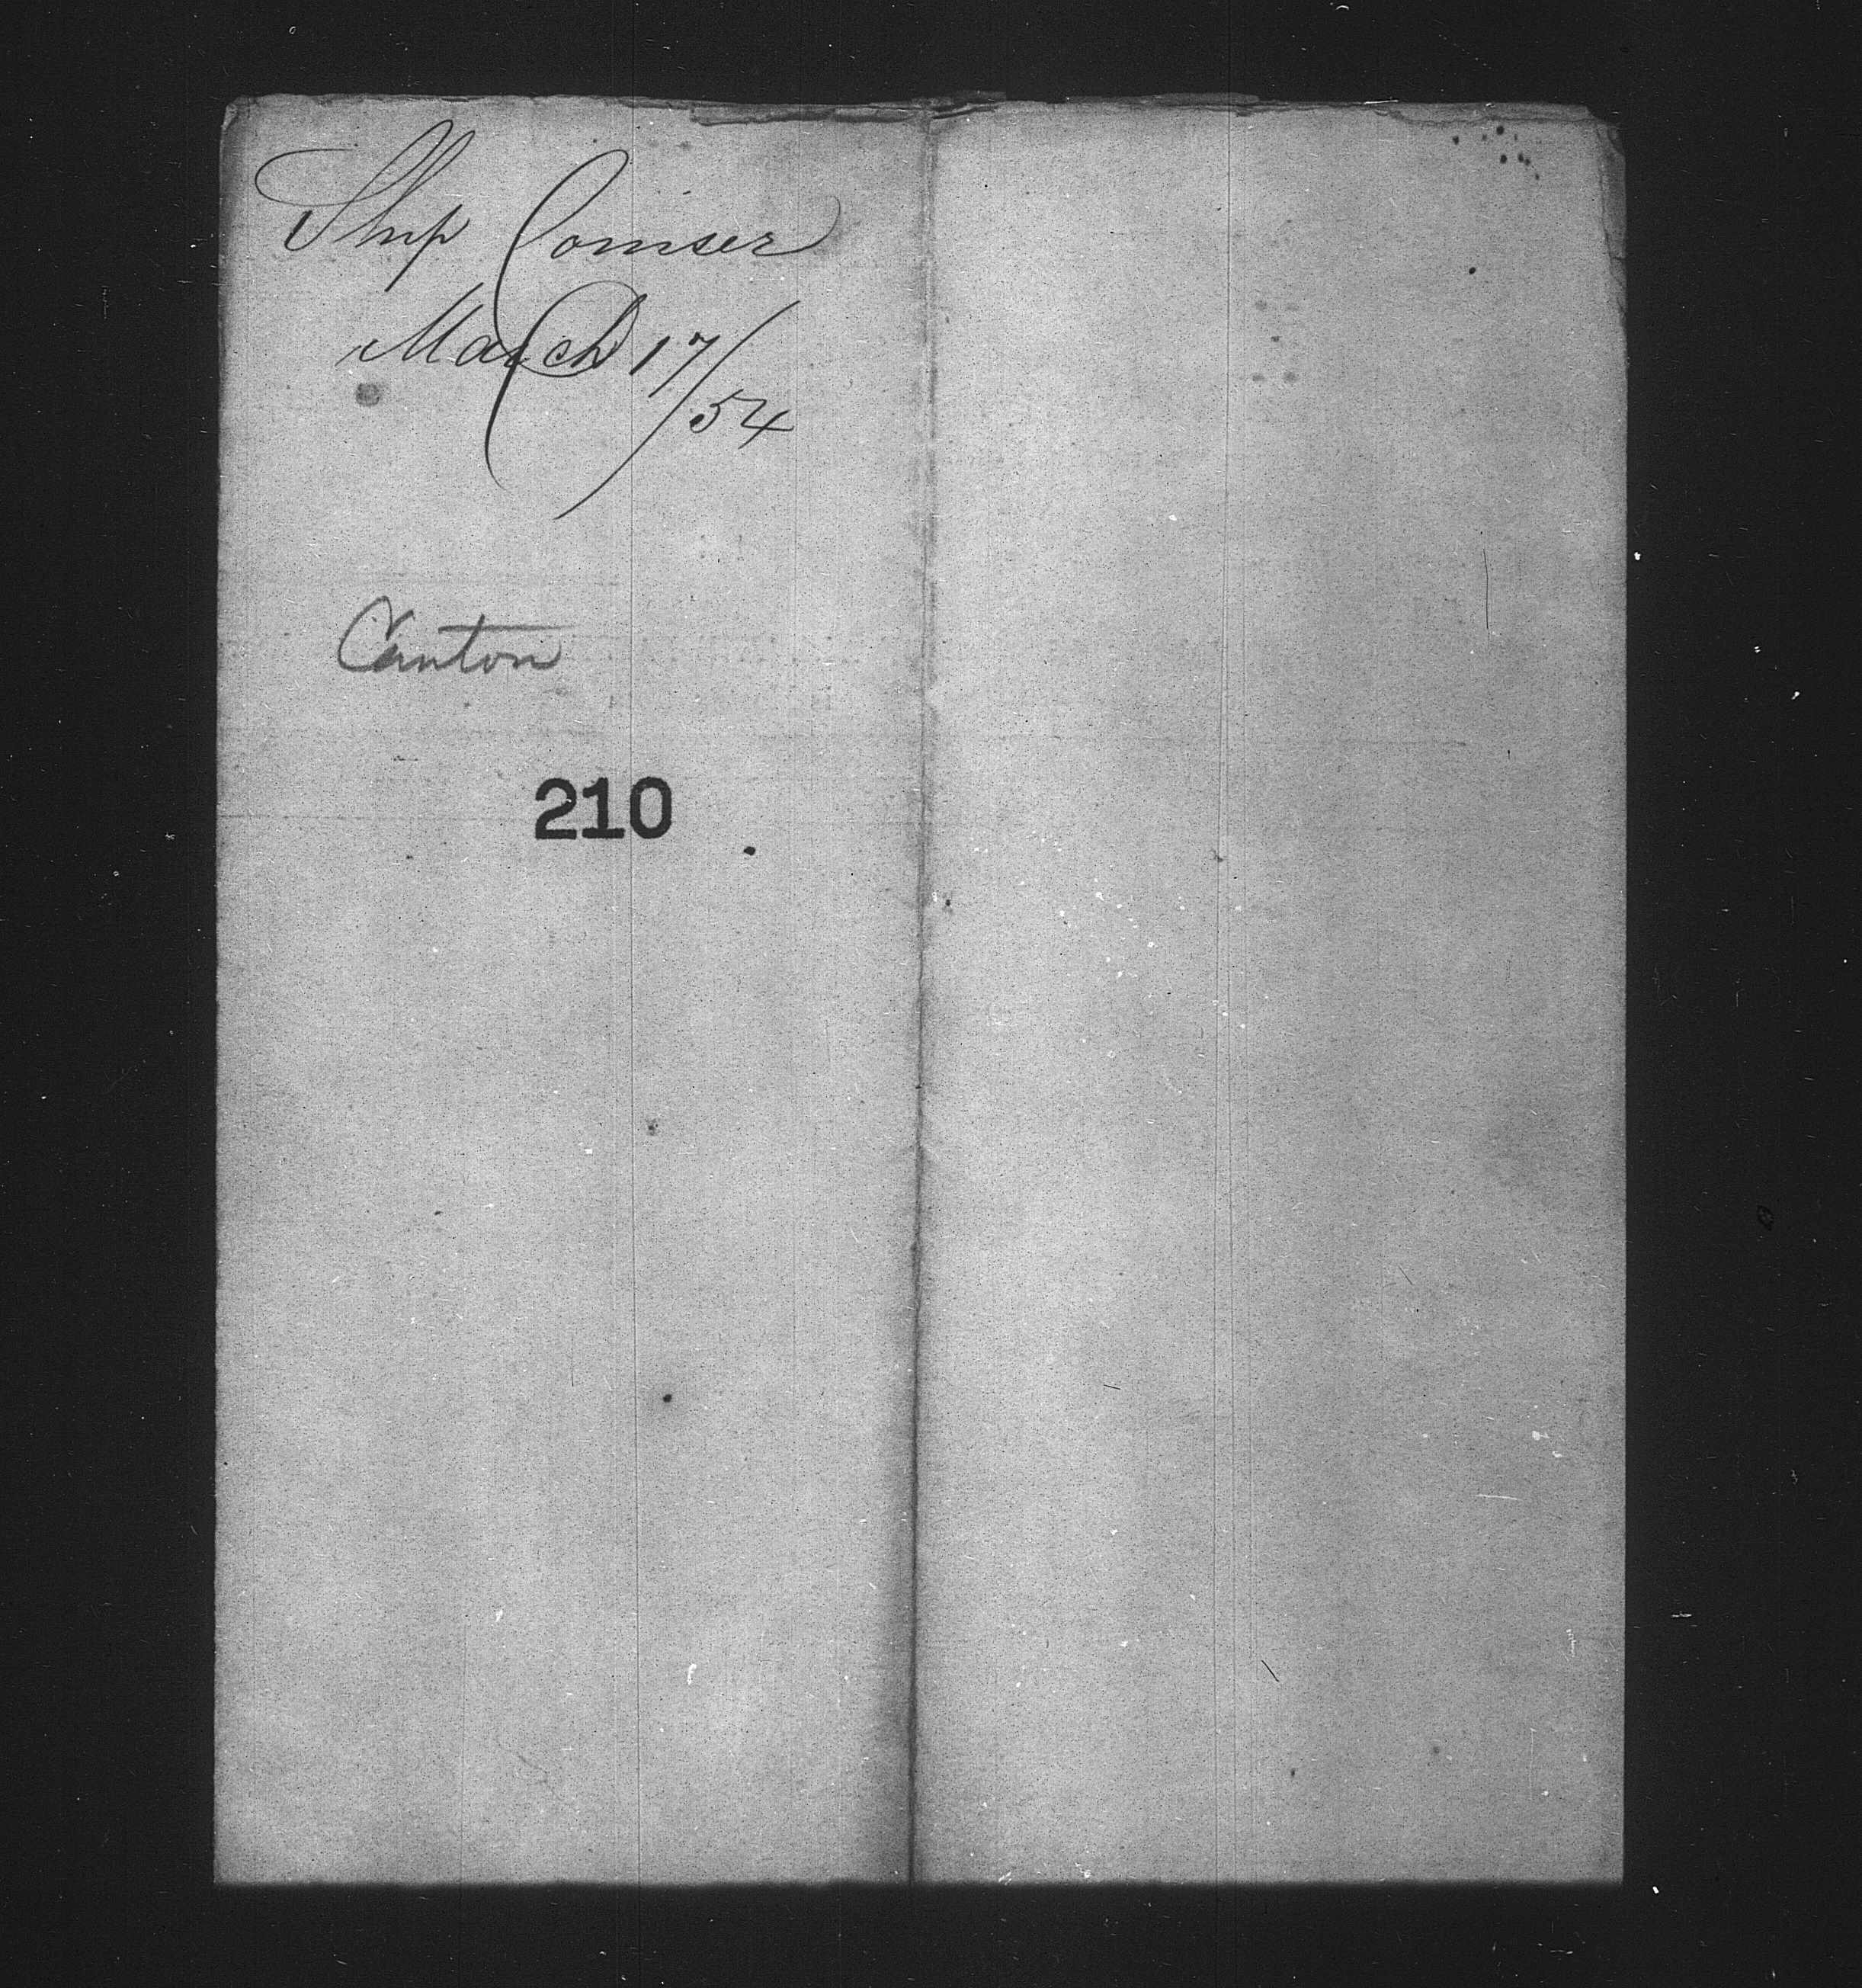 Ship Comiser
March 17/54
Canton
210